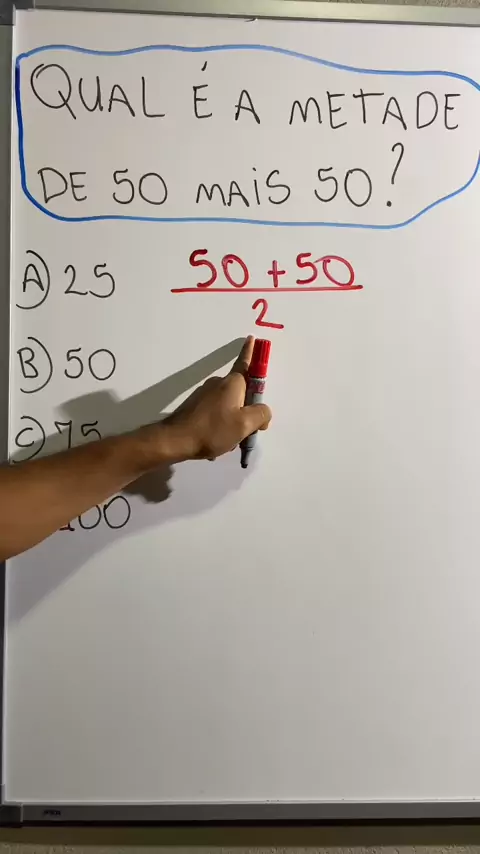 QUAL É A METADE
DE 50 MAIS 50?
A) 25
50 + 50
2
B) 50
C) 75
100